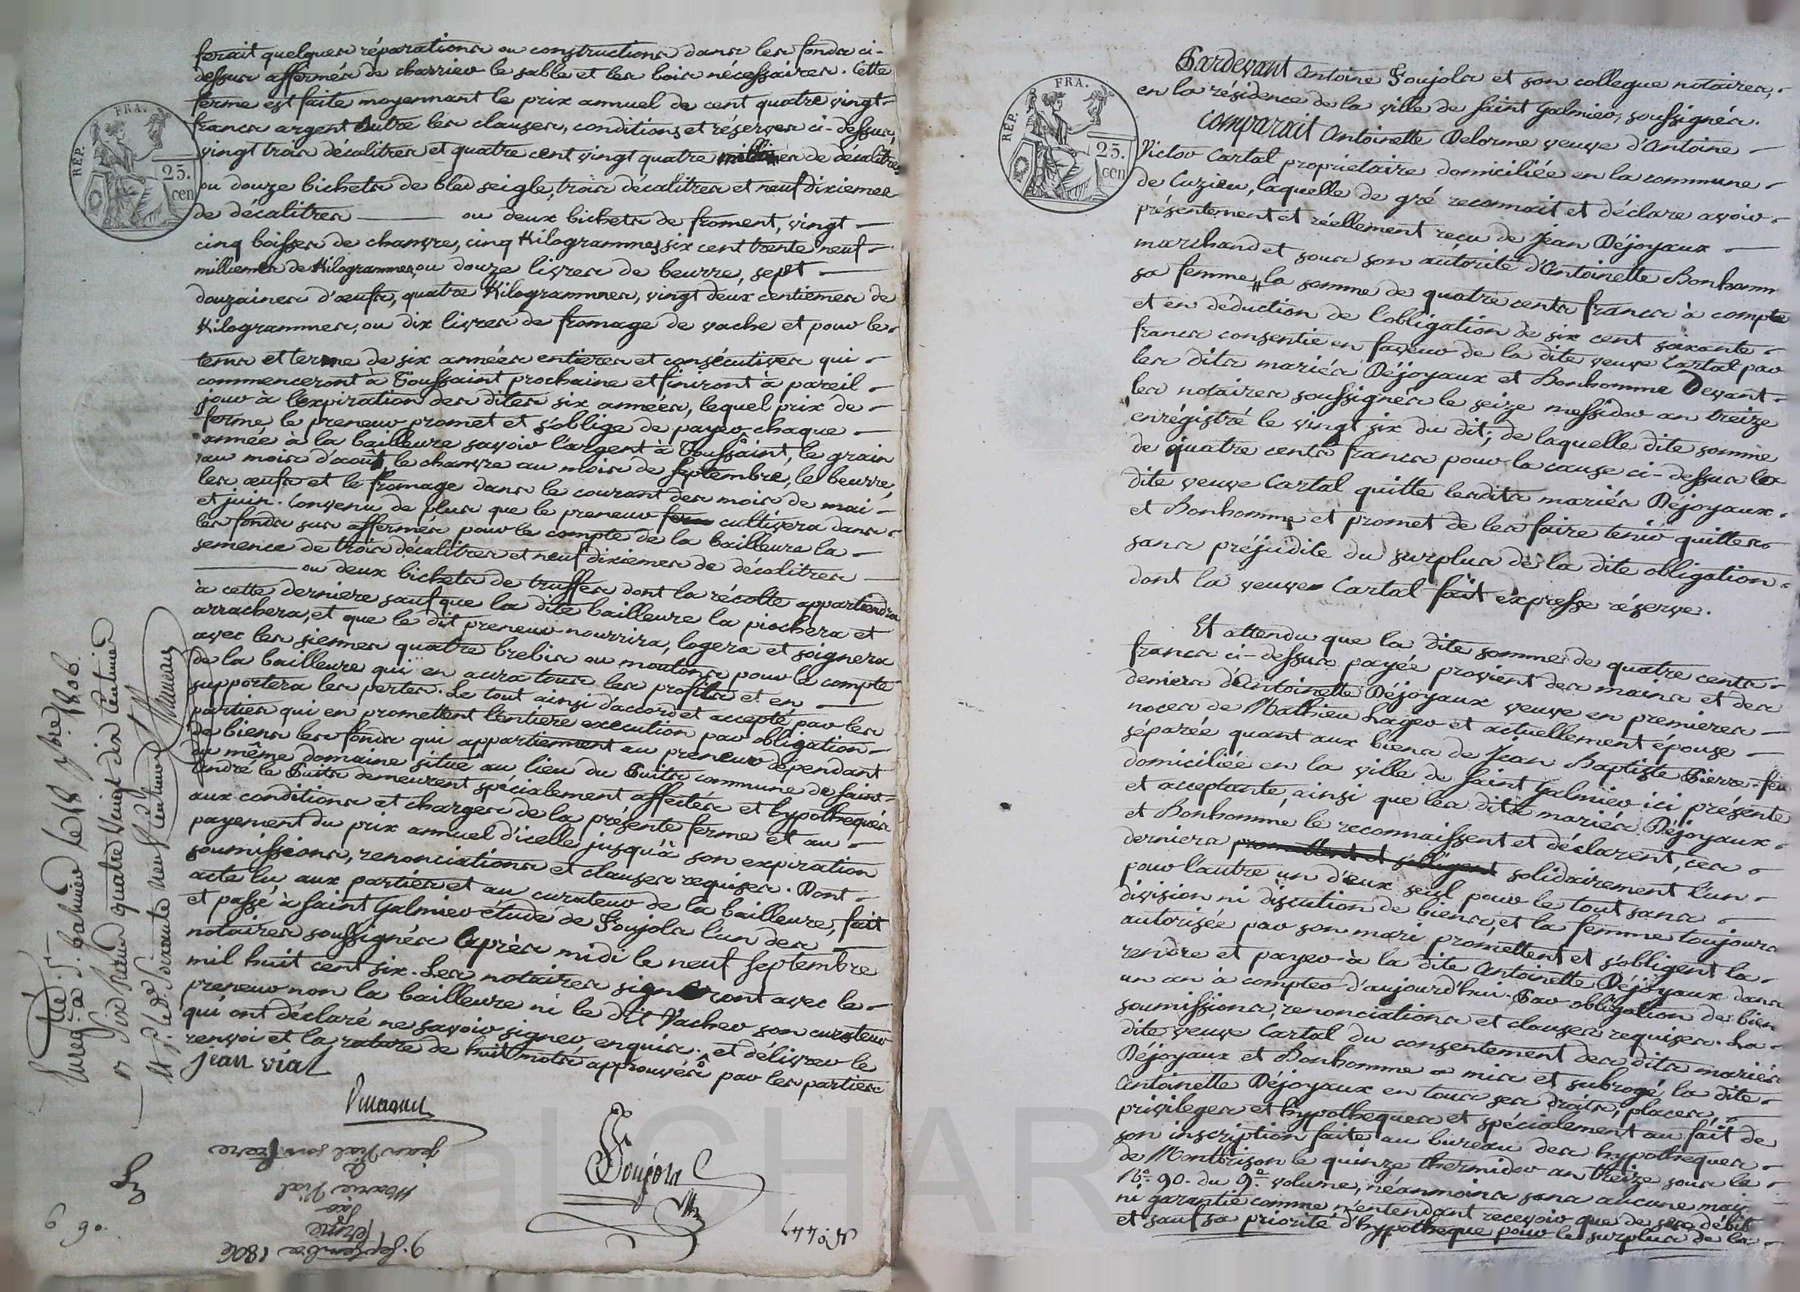 ferait quelques réparations ou constructions dans les fonds ci-
dessus affermés de charrier le sable et les bois nécessaires. Cette
ferme est faite moyennant le prix annuel de cent quatre vingt
francs argent outre les clauses, conditions et réserves ci-dessus,
vingt trois décalitres et quatre cent vingt quatre de décalitre
ou douze bichets de bled seigle, trois décalitres et neuf dixiemes
de décalitres ou deux bichets de froment, vingt
cinq boisses de chanvre, cinq Kilogrammes six cent trente neuf
milliemes de Kilogrammes, ou douze livres de beurre, sept
douzaines d'œufs, quatre Kilogrammes, vingt deux centiemes de
Kilogrammes, ou dix livres de fromage de vache et pour le
tems et terme de six années entieres et consécutives qui
commenceront à Toussaint prochaine et finiront à pareil
jour à l'expiration des dites six années, lequel prix de
ferme le preneur promet et s'oblige de payer chaque
année à la bailleure savoir l'argent à Toussaint, le grain
au mois d'août, le chanvre au mois de septembre, le beurre,
les œufs et le fromage dans le courant des mois de mai
et juin. Convenu de plus que le preneur cultivera dans
les fonds sus affermés pour le compte de la bailleure la
semence de trois décalitres et neuf dixiemes de décalitres
ou deux bichets de truffes dont la récolte appartiendra
à cette derniere sauf que la dite bailleure la piochera et
arrachera, et que le dit preneur nourrira, logera et soignera
avec les siennes quatre brebis ou moutons pour le compte
de la bailleure qui en aura tous les profits et en
supportera les pertes. Le tout ainsi d'accord et accepté par les
parties qui en promettent l'entiere exécution par obligation
de biens les fonds qui appartiennent au preneur dépendant
du même domaine situé au lieu du Puits commune de Saint
André le Puits demeurent spécialement affectés et hypothequés
aux conditions et charges de la présente ferme et au
payement du prix annuel d'icelle jusqu'à son expiration
soumissions, renonciations et clauses requises. Dont
acte lu aux parties et au curateur de la bailleure, fait
et passé à Saint Galmier étude de Poujols l'un des
notaires soussignés après midi le neuf septembre
mil huit cent six. Les notaires signeront avec le
preneur non la bailleure ni le dit Vacher son curateur
qui ont déclaré ne savoir signer enquis. et délivré le
renvoi et la rature de huit mots approuvés par les parties
jean vial
Poujols
Enreg. à S. Galmier le 18 7bre 1806.
quatre vingt dix centimes
9. Septembre 1806
Ferme
Marie Vial
à
jean Vial son frere
No 447
6 60.
RÉP. FRA. 25. cen
Pardevant Antoine Poujols et son collegue notaires,
en la résidence de la ville de Saint Galmier, soussignés.
Comparait Antoinette Delorme veuve d'Antoine
Victor Cartal propriétaire domiciliée en la commune
de Cuzieu, laquelle de gré reconnait et déclare avoir
présentement et réellement reçu de Jean Déjoyaux
marchand et sous son autorité d'Antoinette Bonhomm
sa femme, la somme de quatre cents francs à compte
et en déduction de l'obligation de six cent soixante
francs consentie en faveur de la dite veuve Cartal par
les dits mariés Déjoyaux et Bonhomme Devant
les notaires soussignés le seize messidor an treize
enrégistré le vingt six du dit; de laquelle dite somme
de quatre cents francs pour la cause ci-dessus la
dite veuve Cartal quitte lesdits mariés Déjoyaux
et Bonhomme et promet de les faire tenir quittes
sans préjudice du surplus de la dite obligation
dont la veuve Cartal fait expresse réserve.
Et attendu que la dite somme de quatre cents
francs ci-dessus payée provient des mains et des
deniers d'Antoinette Déjoyaux veuve en premieres
noces de Mathieu Lager et actuellement épouse
séparée quant aux biens de Jean Baptiste Pierre
domiciliée en la ville de Saint Galmier ici présente
et acceptante, ainsi que les dits mariés Déjoyaux
et Bonhomme le reconnaissent et déclarent, ces
derniers promettent et s'obligent solidairement l'un
pour l'autre un d'eux seul pour le tout sans
division ni discution de biens, et la femme toujours
autorisée par son mari promettent et s'obligent la
rendre et payer à la dite Antoinette Déjoyaux dans
un an à compter d'aujourd'hui. Par obligation de bien
soumissions, renonciations et clauses requises. La
dite veuve Cartal du consentement des dits mariés
Déjoyaux et Bonhomme a mis et subrogé la dite
Antoinette Déjoyaux en tous ses droits, places,
privileges et hypotheques et spécialement au fait de
son inscription faite au bureau des hypotheques
de Montbrison le quinze thermidor an treize sous le
No. 90. du 9e. volume, néanmoins sans aucune mai
ni garantie comme n'entendant recevoir que de ses débit
et sauf sa priorité d'hypotheque pour le surplus de la
RÉP. FRA. 25. cen